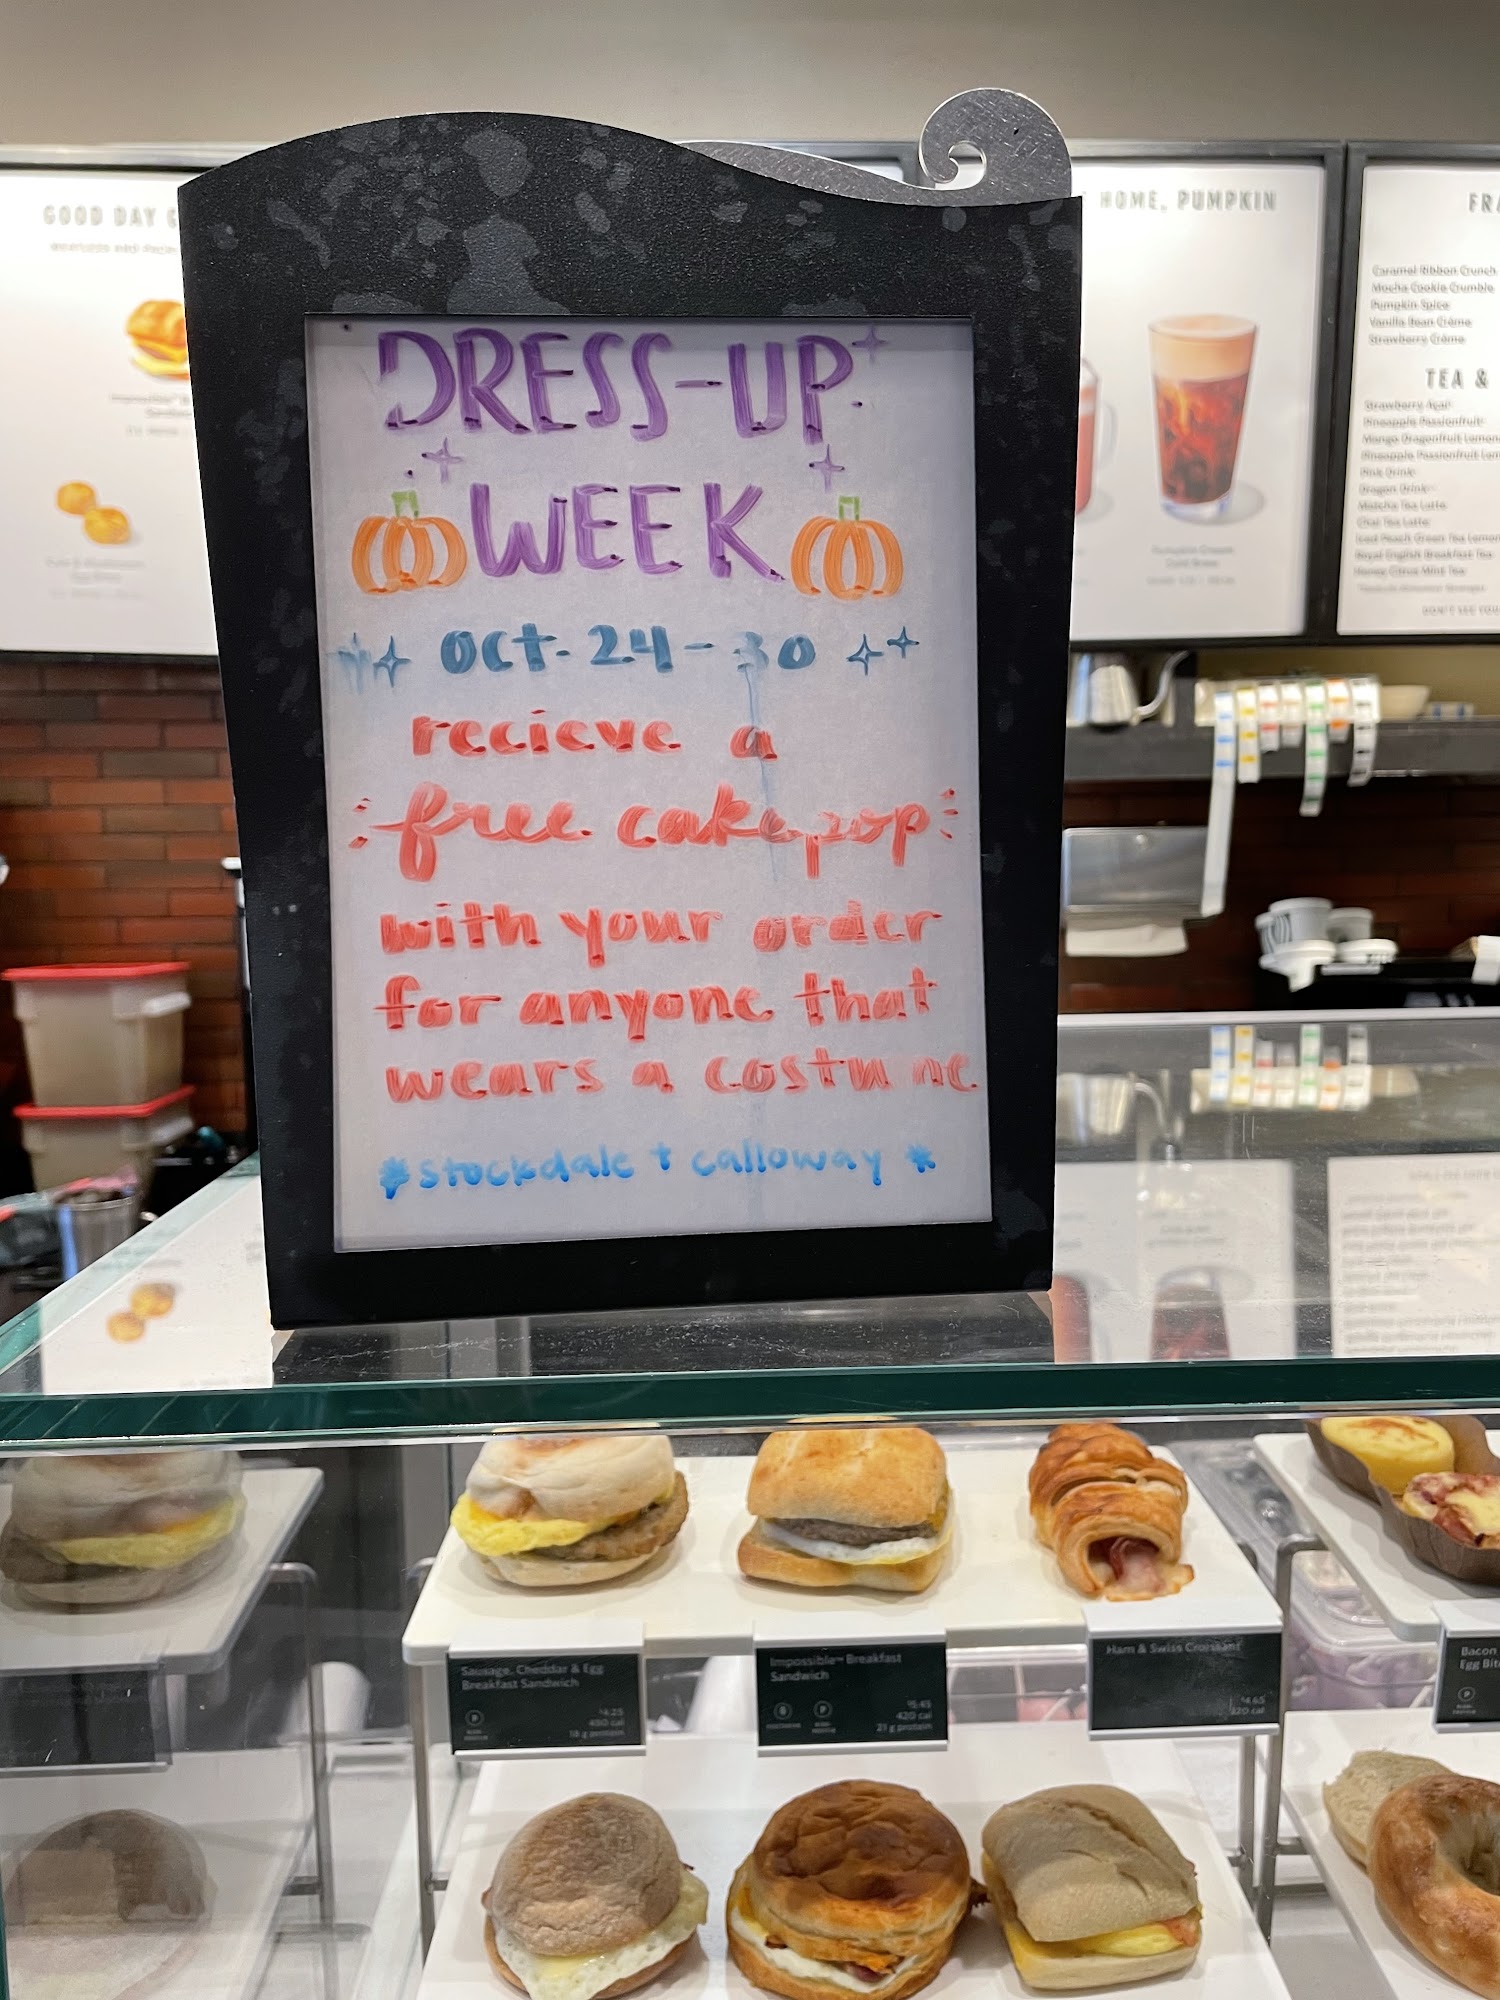 DRESS-UP
WEEK
OCT. 24 - 30
recieve a
free cake pop
with your order
for anyone that
wears a costume
*stockdale + calloway *
GOOD DAY
HOME, PUMPKIN
Pumpkin Cream
Cold Brew
Caramel Ribbon Crunch
Mocha Cookie Crumble
Pumpkin Spice
Vanilla Bean Crème
Strawberry Crème
TEA &
Strawberry Açaí
Pineapple Passionfruit
Mango Dragonfruit
Pineapple Passionfruit
Pink Drink
Dragon Drink
Matcha Tea Latte
Chai Tea Latte
Iced Peach Green Tea
Royal English Breakfast Tea
Honey Citrus Mint Tea
DON'T SEE YOU
Sausage, Cheddar & Egg
Breakfast Sandwich
$4.25
450 cal
18 g protein
Impossible™ Breakfast
Sandwich
$5.45
420 cal
21 g protein
Ham & Swiss Croissant
$4.65
320 cal
Bacon
Egg